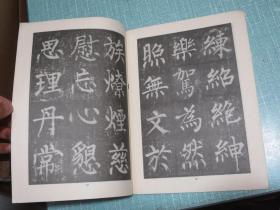 練紹絶紳
樂駕為然
照無文於
族燎煙慈
慰忘心懇
思理丹常